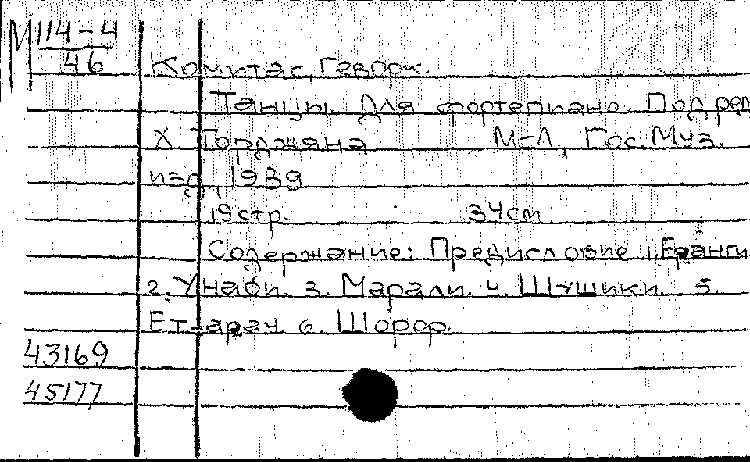 М 114-4
46
Комитас, Геворк.
Танцы. Для фортепиано. Под ред
Х Торджяна М-Л, Гос. Муз.
изд, 1939
19стр. 34см
Содержание: Предисловие 1. Еранги
2. Унаби. 3. Марали. 4. Шушики. 5.
Ет-арач. 6. Шорор.
43169
45177